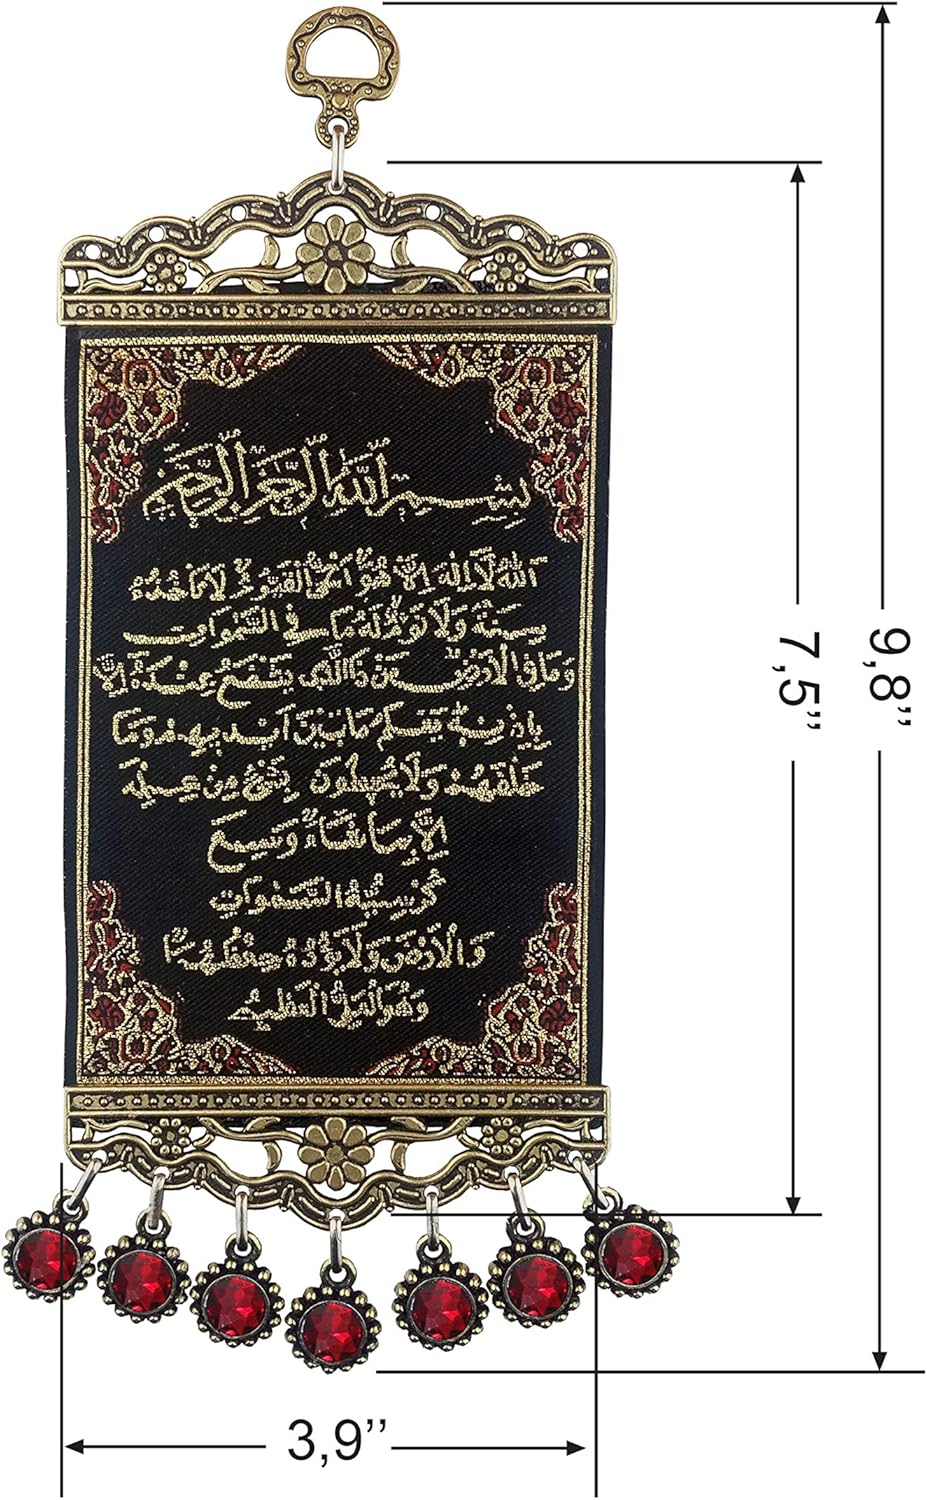 بِسْمِ اللّٰهِ الرَّحْمٰنِ الرَّحِيمِ
اَللّٰهُ لَا اِلٰهَ اِلَّا هُوَ اَلْحَيُّ الْقَيُّومُ لَا تَأْخُذُهُ
سِنَةٌ وَلَا نَوْمٌ لَهُ مَا فِي السَّمٰوَاتِ
وَمَا فِي الْاَرْضِ مَنْ ذَا الَّذِي يَشْفَعُ عِنْدَهُ اِلَّا
بِاِذْنِهِ يَعْلَمُ مَا بَيْنَ اَيْدِيهِمْ وَمَا
خَلْفَهُمْ وَلَا يُحِيطُونَ بِشَيْءٍ مِنْ عِلْمِهِ
اِلَّا بِمَا شَاءَ وَسِعَ
كُرْسِيُّهُ السَّمٰوَاتِ
وَالْاَرْضَ وَلَا يَؤُدُهُ حِفْظُهُمَا
وَهُوَ الْعَلِيُّ الْعَظِيمُ
7,5’’
9,8’’
3,9’’